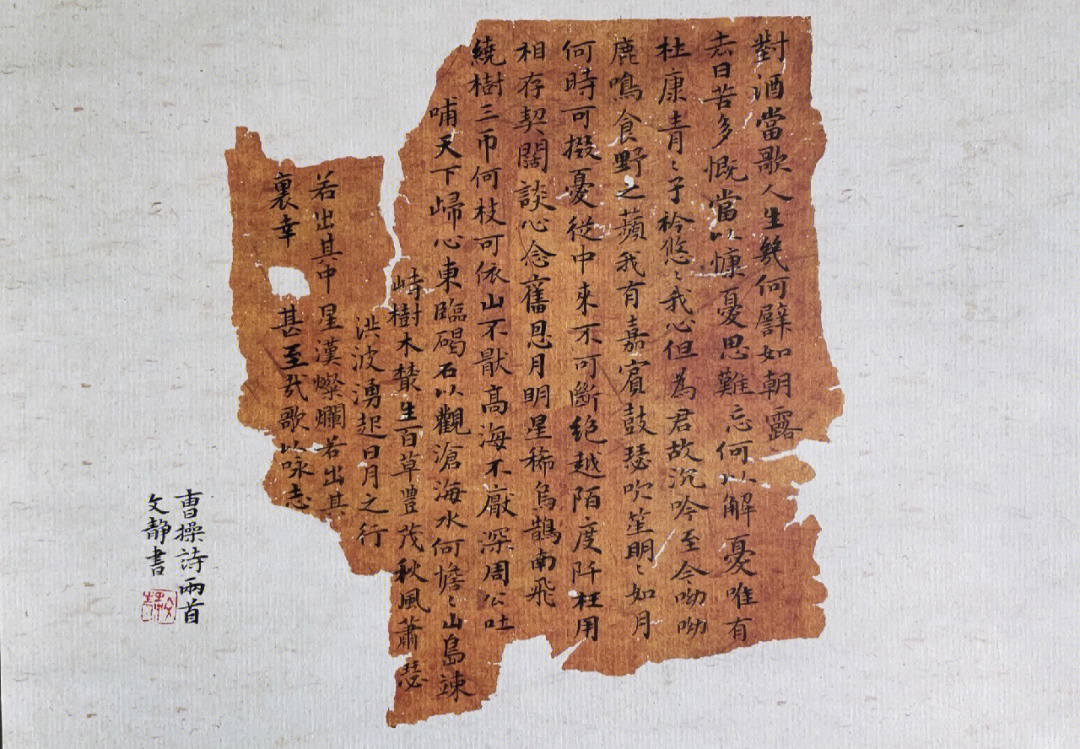 對酒當歌人生幾何譬如朝露
去日苦多慨當以慷憂思難忘何以解憂唯有
杜康青〻子衿悠〻我心但為君故沉吟至今呦呦
鹿鳴食野之蘋我有嘉賓鼓瑟吹笙明〻如月
何時可掇憂從中來不可斷絕越陌度阡枉用
相存契闊談心念舊恩月明星稀烏鵲南飛
繞樹三帀何枝可依山不猒高海不厭深周公吐
哺天下歸心東臨碣石以觀滄海水何憺〻山島竦
峙樹木叢生百草豐茂秋風蕭瑟
洪波湧起日月之行
若出其中星漢燦爛若出其
裏幸甚至哉歌以咏志
曹操詩兩首
文靜書